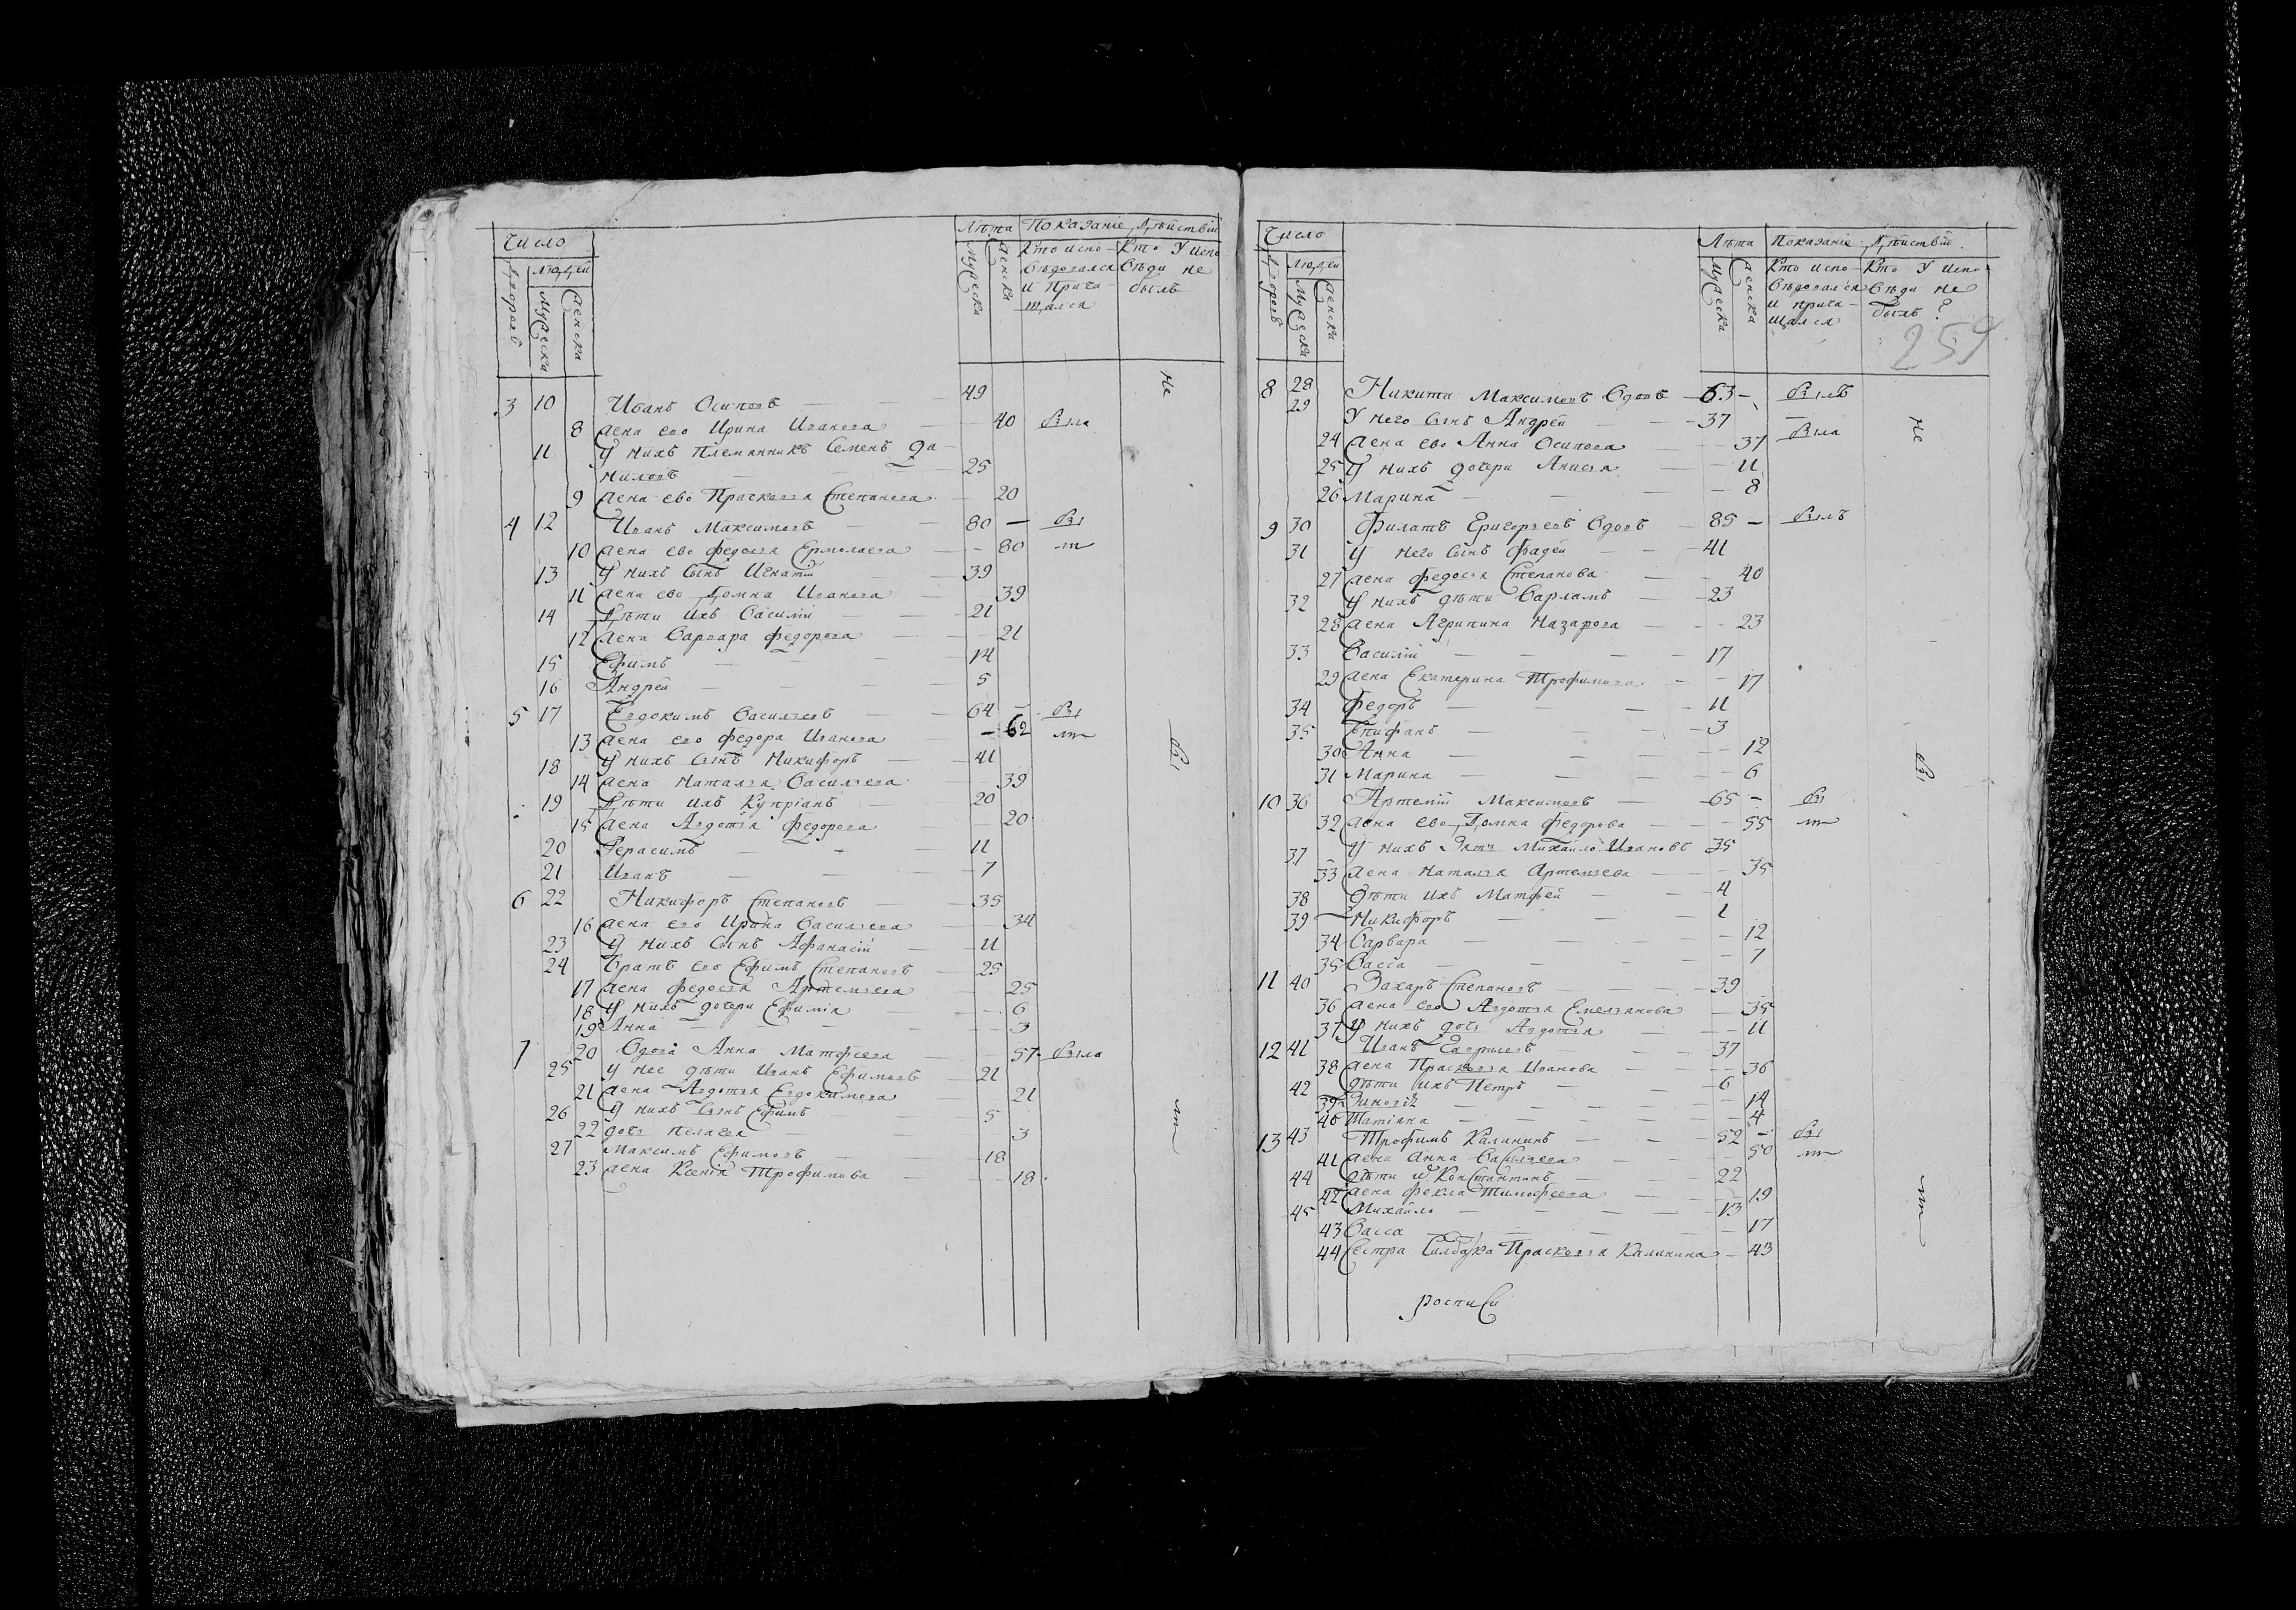 Число Лѣта Показаніе Дѣйствій
Дворовъ Людей Мужеска Женска Мужеска Женска Кто испо- Кто У испо
вѣдовался вѣди не
и прича- былъ
щался
не
3 10 Иванъ Осиповъ 49
8 жена ево Ирина Иванова 40 была
11 У нихъ Племянникъ Семенъ Да-
ниловъ 25
9 жена ево Прасковья Степанова 20
4 12 Иванъ Максимовъ 80 — бы
10 жена ево Федосья Ермолаева 80 ли
13 У нихъ Сынъ Игнатій 39
11 жена ево Домна Иванова 39
14 Дѣти ихъ Василій 21
12 жена Варвара Федорова 21
15 Ефимъ 14
16 Андрей 5
5 17 Евдокимъ Васильевъ 64 — бы
13 жена ево Федора Иванова 62 ли
18 У нихъ сынъ Никифоръ 41
14 жена Наталья Васильева 39
19 Дѣти ихъ Купріанъ 20
15 жена Авдотья Федорова 20
20 Герасимъ 11
21 Иванъ 7
6 22 Никифоръ Степановъ 35
16 жена ево Ирина Васильева 34
23 У нихъ Сынъ Афанасій 11
24 Братъ ево Ефимъ Степановъ 25
17 жена Федосья Артемьева 25
18 У нихъ дочери Ефимія 6
19 Анна 3
7 20 Вдова Анна Матфеева 57 была
25 У нее дѣти Иванъ Ефимовъ 21
21 жена Авдотья Евдокимова 21
26 У нихъ Сынъ Ефимъ 5
22 дочь Пелагея 3
27 Максимъ Ефимовъ 18
23 жена Ксенія Трофимова 18
бы
ли
Число Лѣта Показаніе Дѣйствій
Дворовъ Людей Мужеска Женска Мужеска Женска Кто испо- Кто У испо
вѣдовался вѣди не
и прича- былъ?
щался
259
не
8 28 Никита Максимовъ Вдовъ 63 — былъ
29 У него сынъ Андрей 37 —
24 жена ево Анна Осипова 37 была
25 У нихъ дочери Анисья 11
26 Марина 8
9 30 Филатъ Григорьевъ Вдовъ 85 — былъ
31 У него сынъ Фадей 41
27 жена Федосья Степанова 40
32 У нихъ дѣти Варламъ 23
28 жена Агрипина Назарова 23
33 Василій 17
29 жена Екатерина Трофимова 17
34 Федоръ 11
35 Епифанъ 3
30 Анна 12
31 Марина 6
10 36 Артемій Максимовъ 65 — бы
32 жена ево Домна Федорова 55 ли
37 У нихъ Зять Михайло Ивановъ 35
33 жена Наталья Артемьева 35
38 дѣти ихъ Матфей 4
39 Никифоръ 1
34 Варвара 12
35 Васса 7
11 40 Захаръ Степановъ 39
36 жена ево Авдотья Емельянова 35
37 У нихъ дочь Авдотья 11
12 41 Иванъ Гавриловъ 37
38 жена Прасковья Иванова 36
42 дѣти ихъ Петръ 6
39 Зиновія 14
40 Татіяна 4
13 43 Трофимъ Калининъ 52 — бы
41 жена Анна Васильева 50 ли
44 дѣти и Константинъ 22
42 жена Фекла Тимофеева 19
45 Михайло 13
43 Васса 17
44 Сестра Солдатка Прасковья Калинина 43
бы
ли
росписи